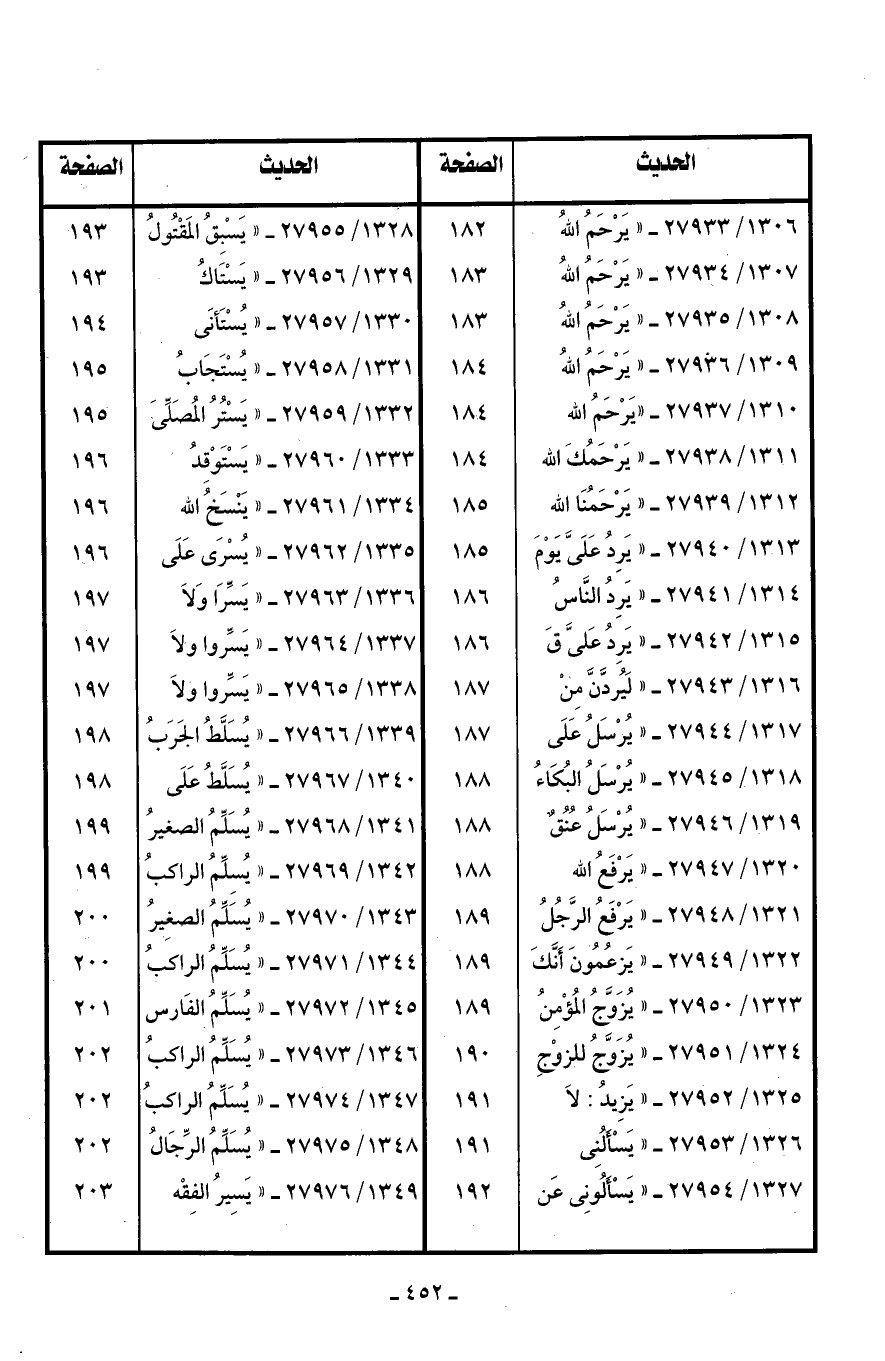 الحديث الصفحة الحديث الصفحة
١٣٠٦/ ٢٧٩٣٣ ـ « يَرْحَمُ اللهُ ١٨٢ ١٣٢٨/ ٢٧٩٥٥ ـ « يَسْبِقُ المَقْتُولُ ١٩٣
١٣٠٧/ ٢٧٩٣٤ ـ « يَرْحَمُ اللهُ ١٨٣ ١٣٢٩/ ٢٧٩٥٦ ـ « يَسْتَاكُ ١٩٣
١٣٠٨/ ٢٧٩٣٥ ـ « يَرْحَمُ اللهُ ١٨٣ ١٣٣٠/ ٢٧٩٥٧ ـ « يُسْتَأنَى ١٩٤
١٣٠٩/ ٢٧٩٣٦ ـ « يَرْحَمُ اللهُ ١٨٤ ١٣٣١/ ٢٧٩٥٨ ـ « يُسْتَجَابُ ١٩٥
١٣١٠/ ٢٧٩٣٧ ـ «يَرْحَمُ الله ١٨٤ ١٣٣٢/ ٢٧٩٥٩ ـ « يَسْتُرُ المُصَلِّىَ ١٩٥
١٣١١/ ٢٧٩٣٨ ـ « يَرْحَمُكَ الله ١٨٤ ١٣٣٣/ ٢٧٩٦٠ ـ « يَسْتَوْقِدُ ١٩٦
١٣١٢/ ٢٧٩٣٩ ـ « يَرْحَمُنَا الله ١٨٥ ١٣٣٤/ ٢٧٩٦١ ـ « يَنْسَخُ الله ١٩٦
١٣١٣/ ٢٧٩٤٠ ـ « يَرِدُ عَلَىَّ يَوْمَ ١٨٥ ١٣٣٥/ ٢٧٩٦٢ ـ « يُسْرَى عَلَى ١٩٦
١٣١٤/ ٢٧٩٤١ ـ « يَرِدُ النَّاسُ ١٨٦ ١٣٣٦/ ٢٧٩٦٣ ـ « يَسِّرَا وَلاَ ١٩٧
١٣١٥/ ٢٧٩٤٢ ـ « يَرِدُ عَلىَّ قَ ١٨٦ ١٣٣٧/ ٢٧٩٦٤ ـ « يَسِّروا ولاَ ١٩٧
١٣١٦/ ٢٧٩٤٣ ـ « لَيُردَّنَّ مِنْ ١٨٧ ١٣٣٨/ ٢٧٩٦٥ ـ « يَسِّروا وَلاَ ١٩٧
١٣١٧/ ٢٧٩٤٤ ـ « يُرْسَلُ عَلَى ١٨٧ ١٣٣٩/ ٢٧٩٦٦ ـ « يُسَلَّطُ الجَرَبُ ١٩٨
١٣١٨/ ٢٧٩٤٥ ـ « يُرْسَلُ البُكَاءُ ١٨٨ ١٣٤٠/ ٢٧٩٦٧ ـ « يُسَلَّطُ عَلَى ١٩٨
١٣١٩/ ٢٧٩٤٦ ـ « يُرْسَلُ عُنُقٌ ١٨٨ ١٣٤١/ ٢٧٩٦٨ ـ « يُسَلِّمُ الصغيرُ ١٩٩
١٣٢٠/ ٢٧٩٤٧ ـ « يَرْفَعُ الله ١٨٨ ١٣٤٢/ ٢٧٩٦٩ ـ « يُسلِّمُ الراكبُ ١٩٩
١٣٢١/ ٢٧٩٤٨ ـ « يَرْفَعُ الرَّجُلُ ١٨٩ ١٣٤٣/ ٢٧٩٧٠ ـ « يُسَلِّمُ الصغِيرُ ٢٠٠
١٣٢٢/ ٢٧٩٤٩ ـ « يَزعُمُونَ أَنَّكَ ١٨٩ ١٣٤٤/ ٢٧٩٧١ ـ « يُسَلِّمُ الراكبُ ٢٠٠
١٣٢٣/ ٢٧٩٥٠ ـ « يُزَوَّجُ المُؤْمِنُ ١٨٩ ١٣٤٥/ ٢٧٩٧٢ ـ « يُسَلِّمُ الفَارس ٢٠١
١٣٢٤/ ٢٧٩٥١ ـ « يُزَوَّجُ للزوْجِ ١٩٠ ١٣٤٦/ ٢٧٩٧٣ ـ « يُسَلِّمُ الراكبُ ٢٠٢
١٣٢٥/ ٢٧٩٥٢ ـ « يَزِيدُ : لاَ ١٩١ ١٣٤٧/ ٢٧٩٧٤ ـ « يُسَلِّمُ الراكبُ ٢٠٢
١٣٢٦/ ٢٧٩٥٣ ـ « يَسْأَلُنِى ١٩١ ١٣٤٨/ ٢٧٩٧٥ ـ « يُسَلِّمُ الرِّجَالُ ٢٠٢
١٣٢٧/ ٢٧٩٥٤ ـ « يَسْأَلُونِى عَن ١٩٢ ١٣٤٩/ ٢٧٩٧٦ ـ « يَسِيرُ الفِقْه ٢٠٣
ـ ٤٥٢ ـ